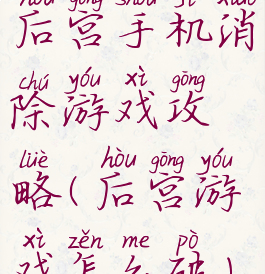 hòu gōng shǒu jī xiāo
后宫手机消
chú yóu xì gōng
除游戏攻
lüè hòu gōng yóu
略(后宫游
xì zěn me pò
戏怎么破)